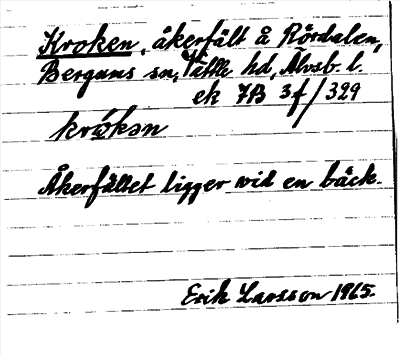 Kroken, åkerfält å Rördalen,
Bergums sn, Vättle hd, Älvsb. l.
ek 7B 3f/329
krókən
Åkerfältet ligger vid en bäck.
Erik Larsson 1965.